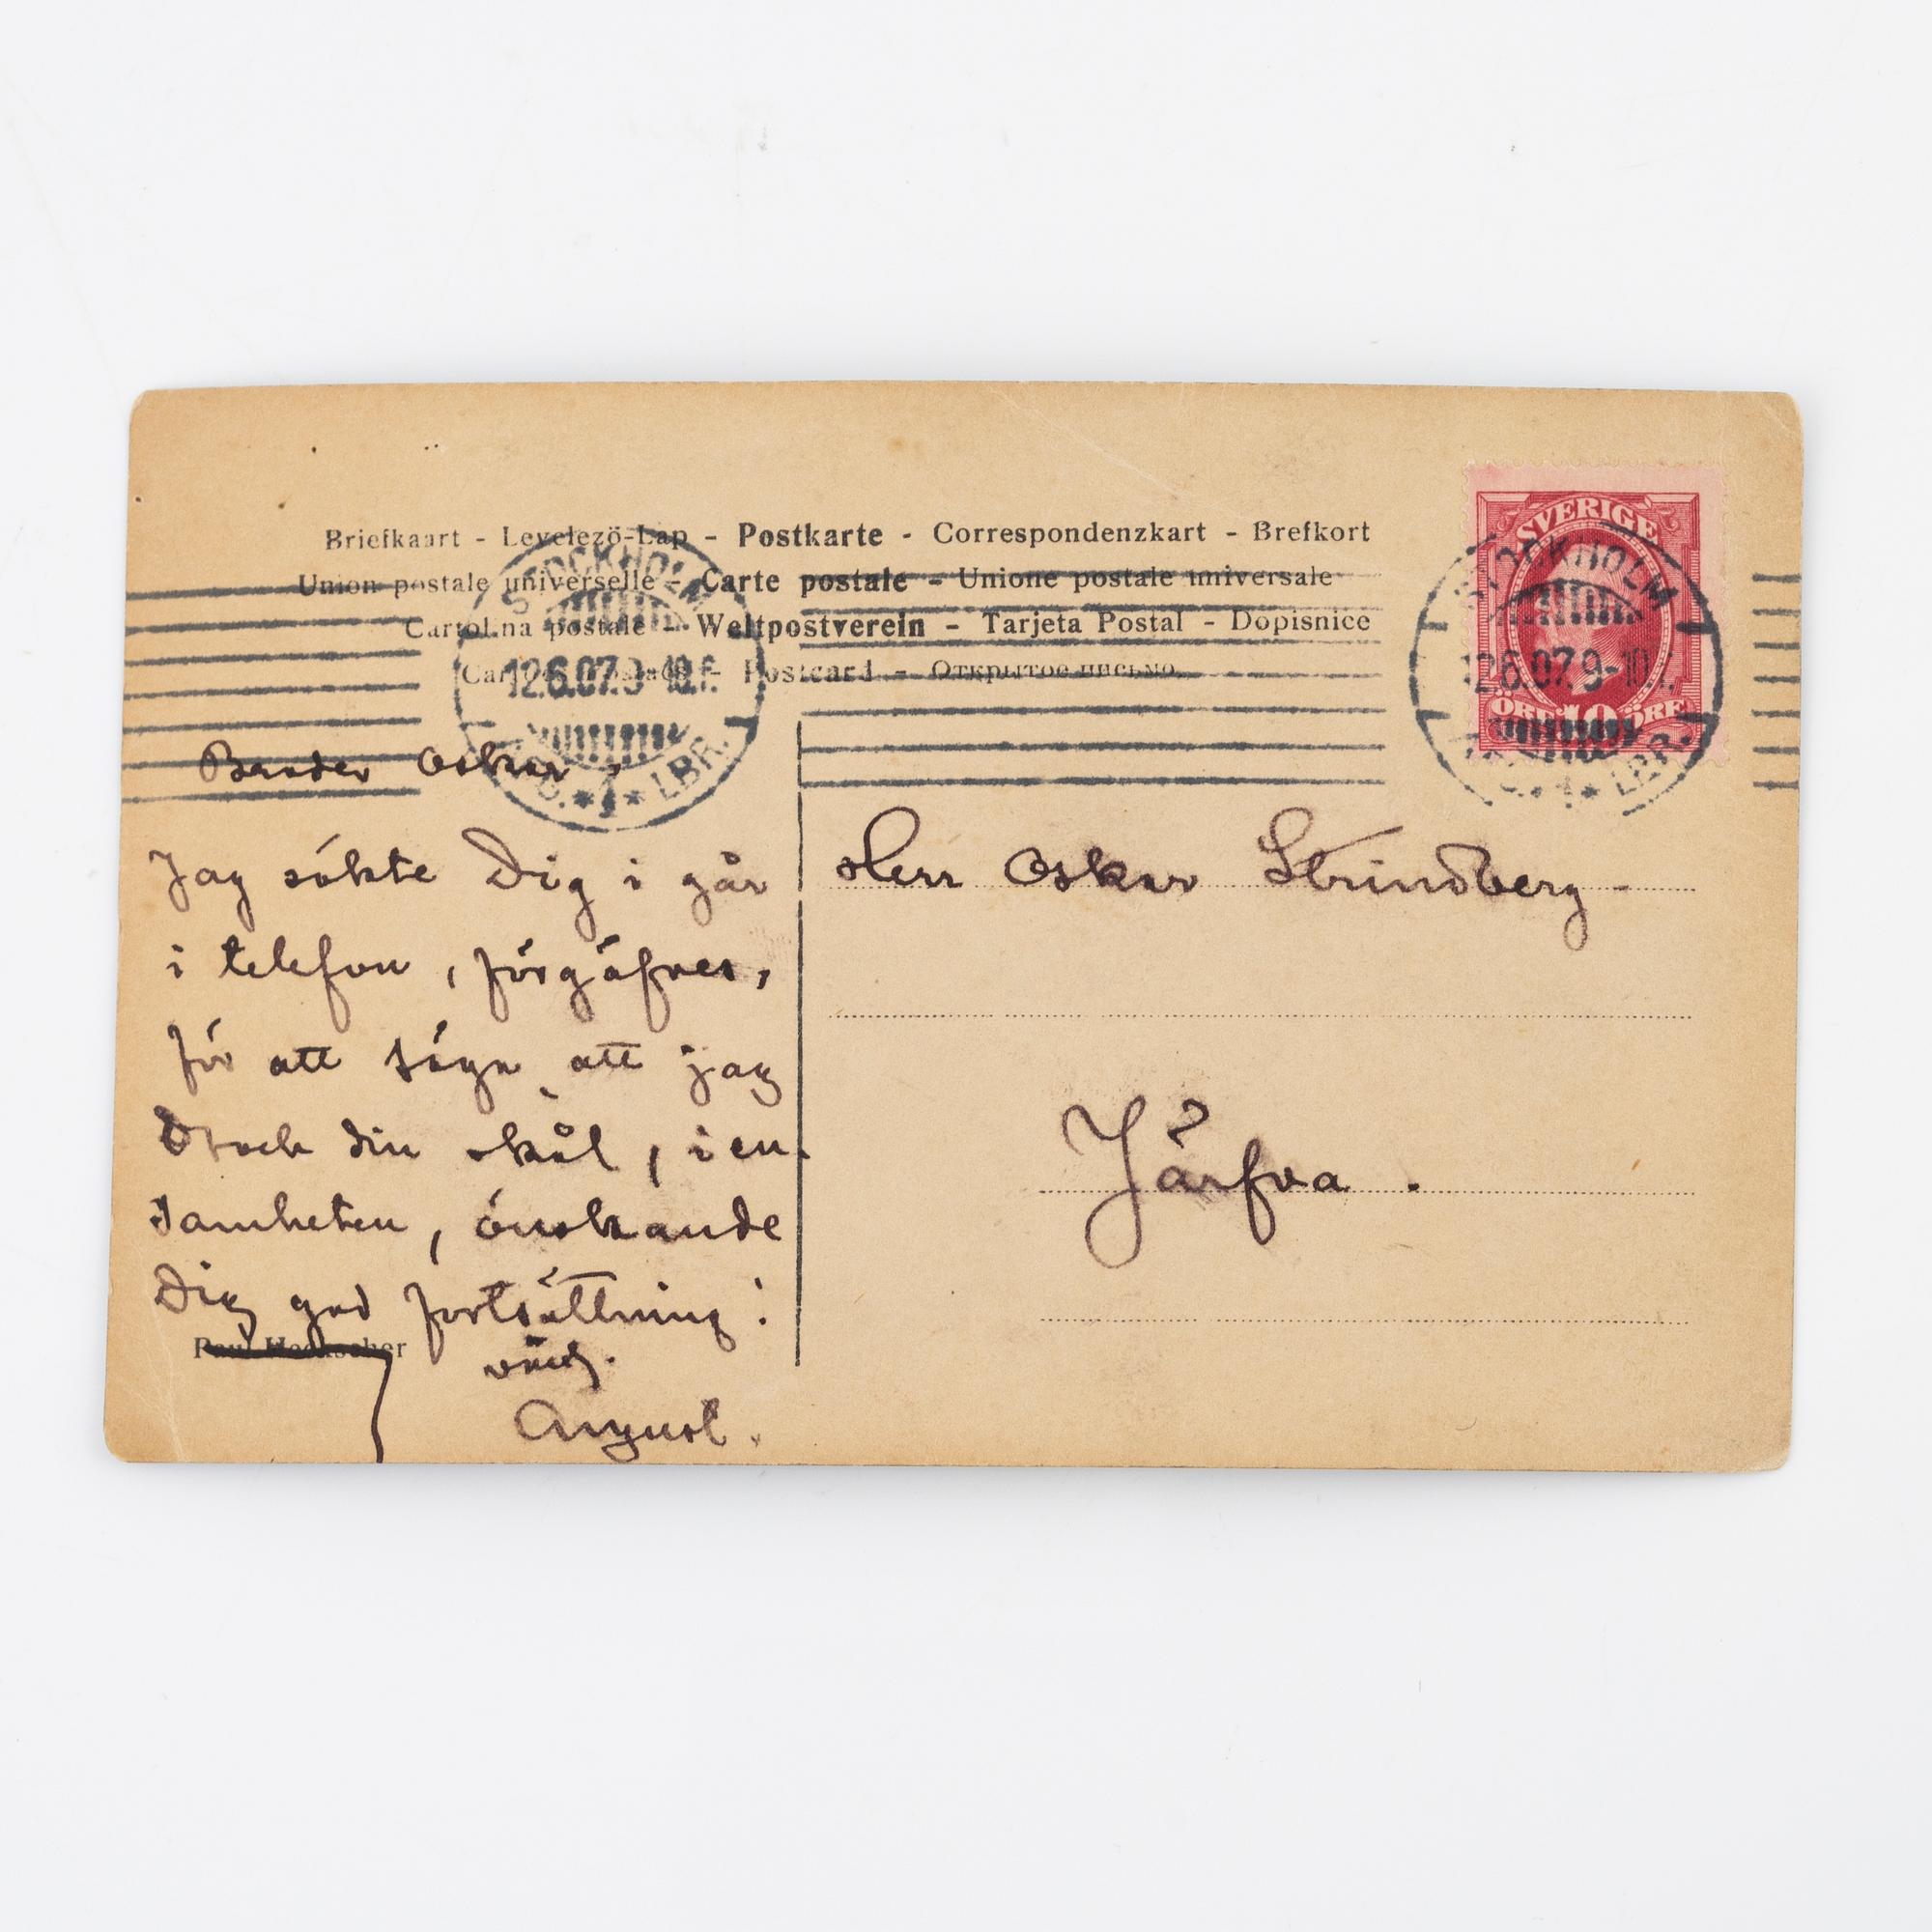 Briefkaart - Levelezö-Lap - Postkarte - Correspondenzkart - Brefkort
Union postale universelle - Carte postale - Unione postale universale
Cartolina postale - Weltpostverein - Tarjeta Postal - Dopisnice
Postcard - Открытое письмо
SVERIGE
ÖRE 10 ÖRE
STOCKHOLM
12.6.07.9-10 f.
1 LBR.
STOCKHOLM
12.6.07.9-10 f.
1 LBR.
Broder Oskar,
Jag sökte Dig i går
i telefon, förgäfves,
för att säga att jag
drack din skål, i en-
samheten, önskande
Dig god fortsättning!
Paul Heckscher
vänl.
August.
Herr Oskar Strindberg
Järfva.